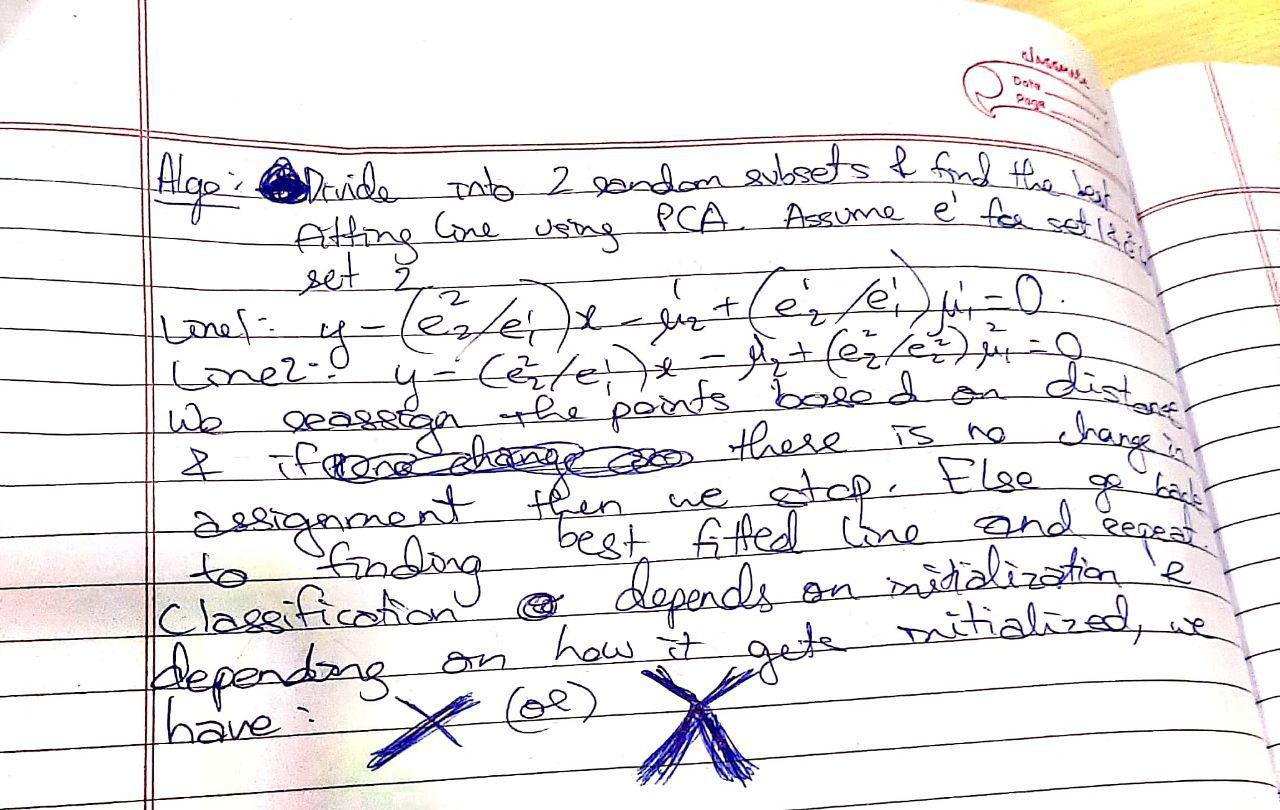 classmate
Date
Page
Algo: Divide into 2 random subsets & find the best
fitting line using PCA. Assume e' for set 1 &
set 2
Line1:- y - (e²₂/e¹₁)x - μ¹₂ + (e¹₂/e¹₁)μ¹₁ = 0.
Line2:- y - (e²₂/e¹₁)x - μ²₂ + (e²₂/e²₂)μ²₁ = 0
We reassign the points based on distance
& if there is no change in
assignment then we stop. Else go back
to finding best fitted line and repeat.
Classification depends on initialization &
depending on how it gets initialized, we
have: (or)